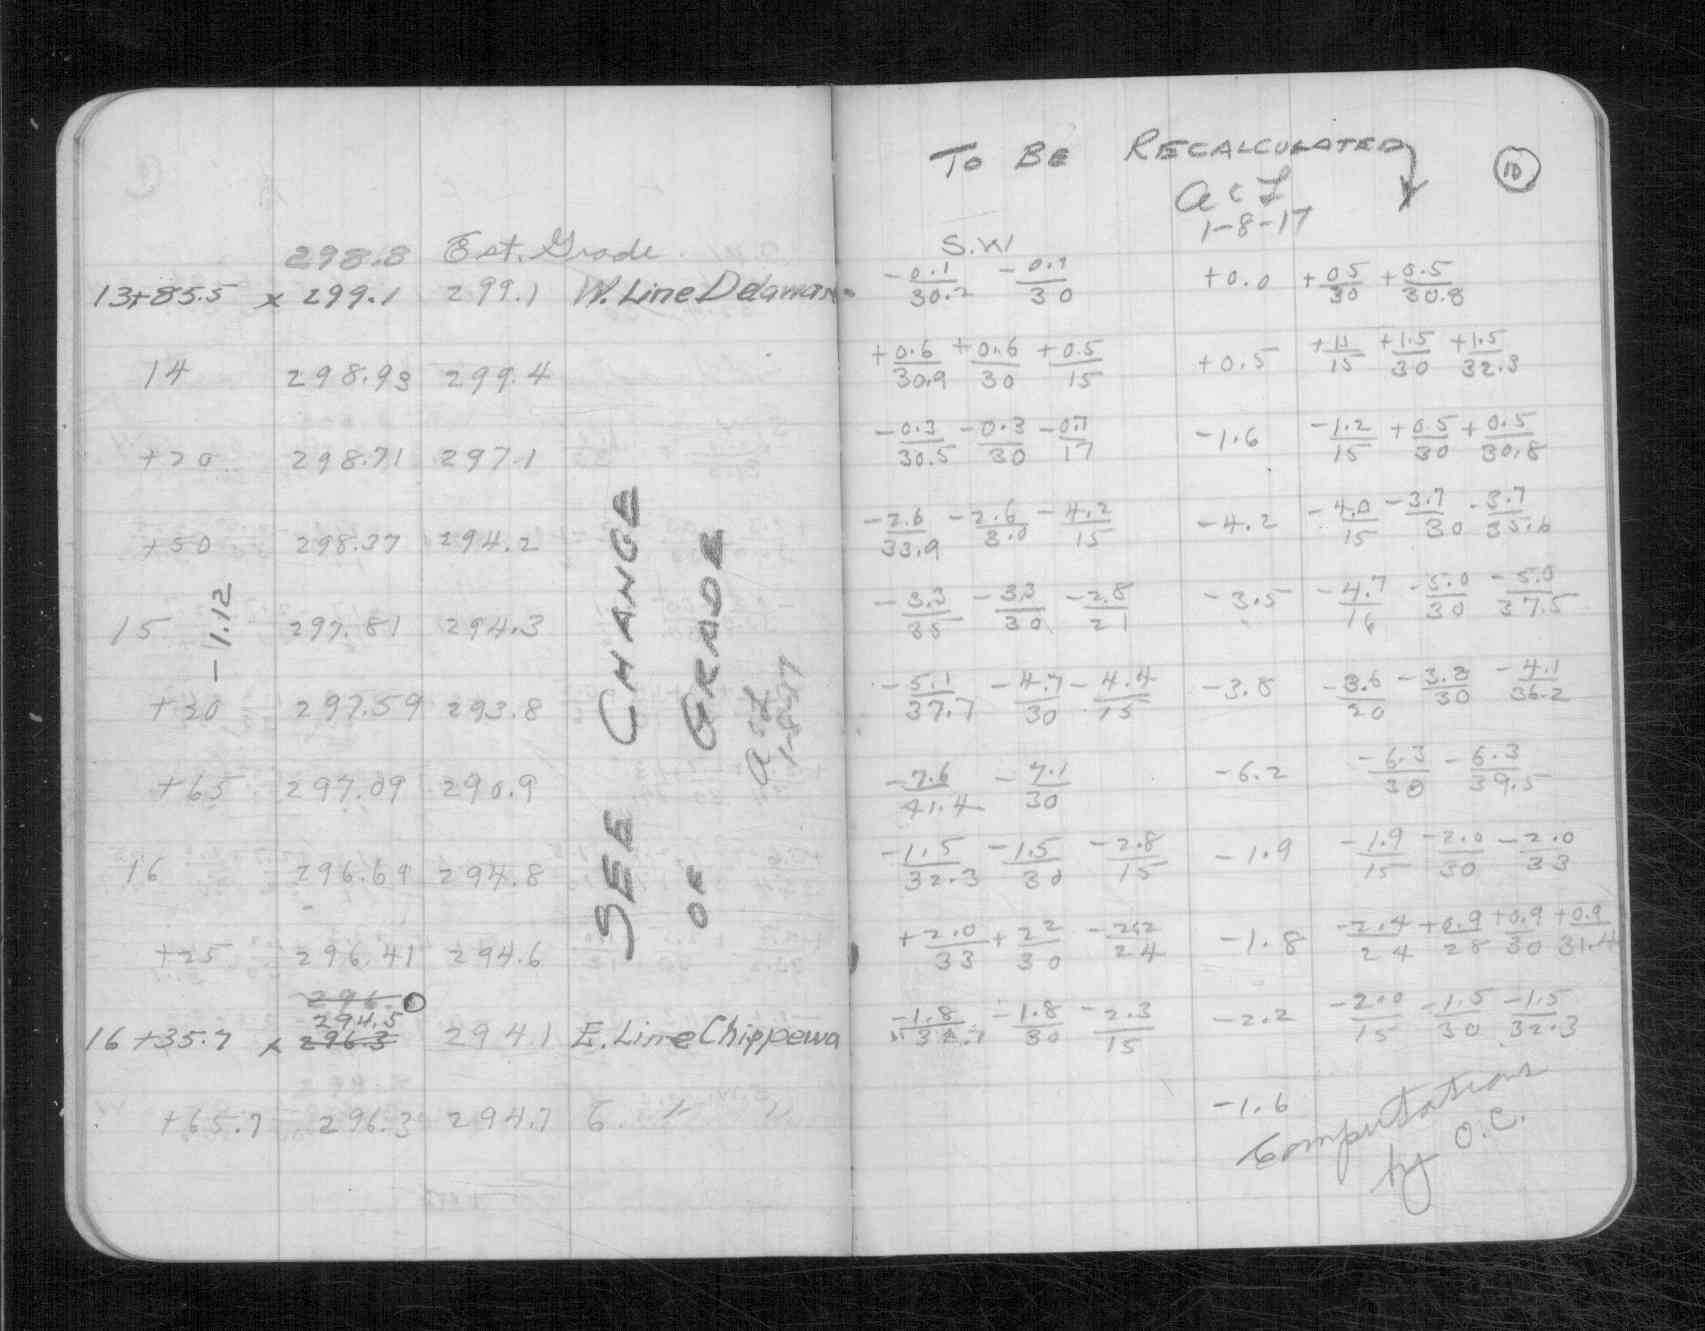 298.8 Est. Grade
13+85.5 x 299.1 299.1 W. Line Delaware
14 298.93 299.4
+20 298.71 297.1
+50 298.37 294.2
15 297.81 294.3
-1.12
+30 297.59 293.8
+65 297.09 290.9
16 296.69 294.8
+25 296.41 294.6
296.0
294.5
16+35.7 x 296.3 294.1 E. Line Chippewa
+65.7 296.3 294.7 " "
SEE CHANGE
OF GRADE
A & L
TO BE RECALCULATED
A & L
1-8-17
10
S.W
-0.1/30.2 -0.1/30 +0.0 +0.5/30 +0.5/30.8
+0.6/30.9 +0.6/30 +0.5/15 +0.5 +1.1/15 +1.5/30 +1.5/32.3
-0.3/30.5 -0.3/30 -0.7/17 -1.6 -1.2/15 +0.5/30 +0.5/30.8
-2.6/33.9 -2.6/30 -4.2/15 -4.2 -4.0/15 -3.7/30 -3.7/35.6
-3.3/35 -3.3/30 -2.8/21 -3.5 -4.7/16 -5.0/30 -5.0/37.5
-5.1/37.7 -4.7/30 -4.4/15 -3.8 -3.6/20 -3.8/30 -4.1/36.2
-7.6/41.4 -7.1/30 -6.2 -6.3/30 -6.3/39.5
-1.5/32.3 -1.5/30 -2.8/15 -1.9 -1.9/15 -2.0/30 -2.0/33
+2.0/33 +2.2/30 -2.2/24 -1.8 -2.4/24 +0.9/28 +0.9/30 +0.9/31.4
-1.8/32.7 -1.8/30 -2.3/15 -2.2 -2.0/15 -1.5/30 -1.5/32.3
-1.6
Computations
by O.C.